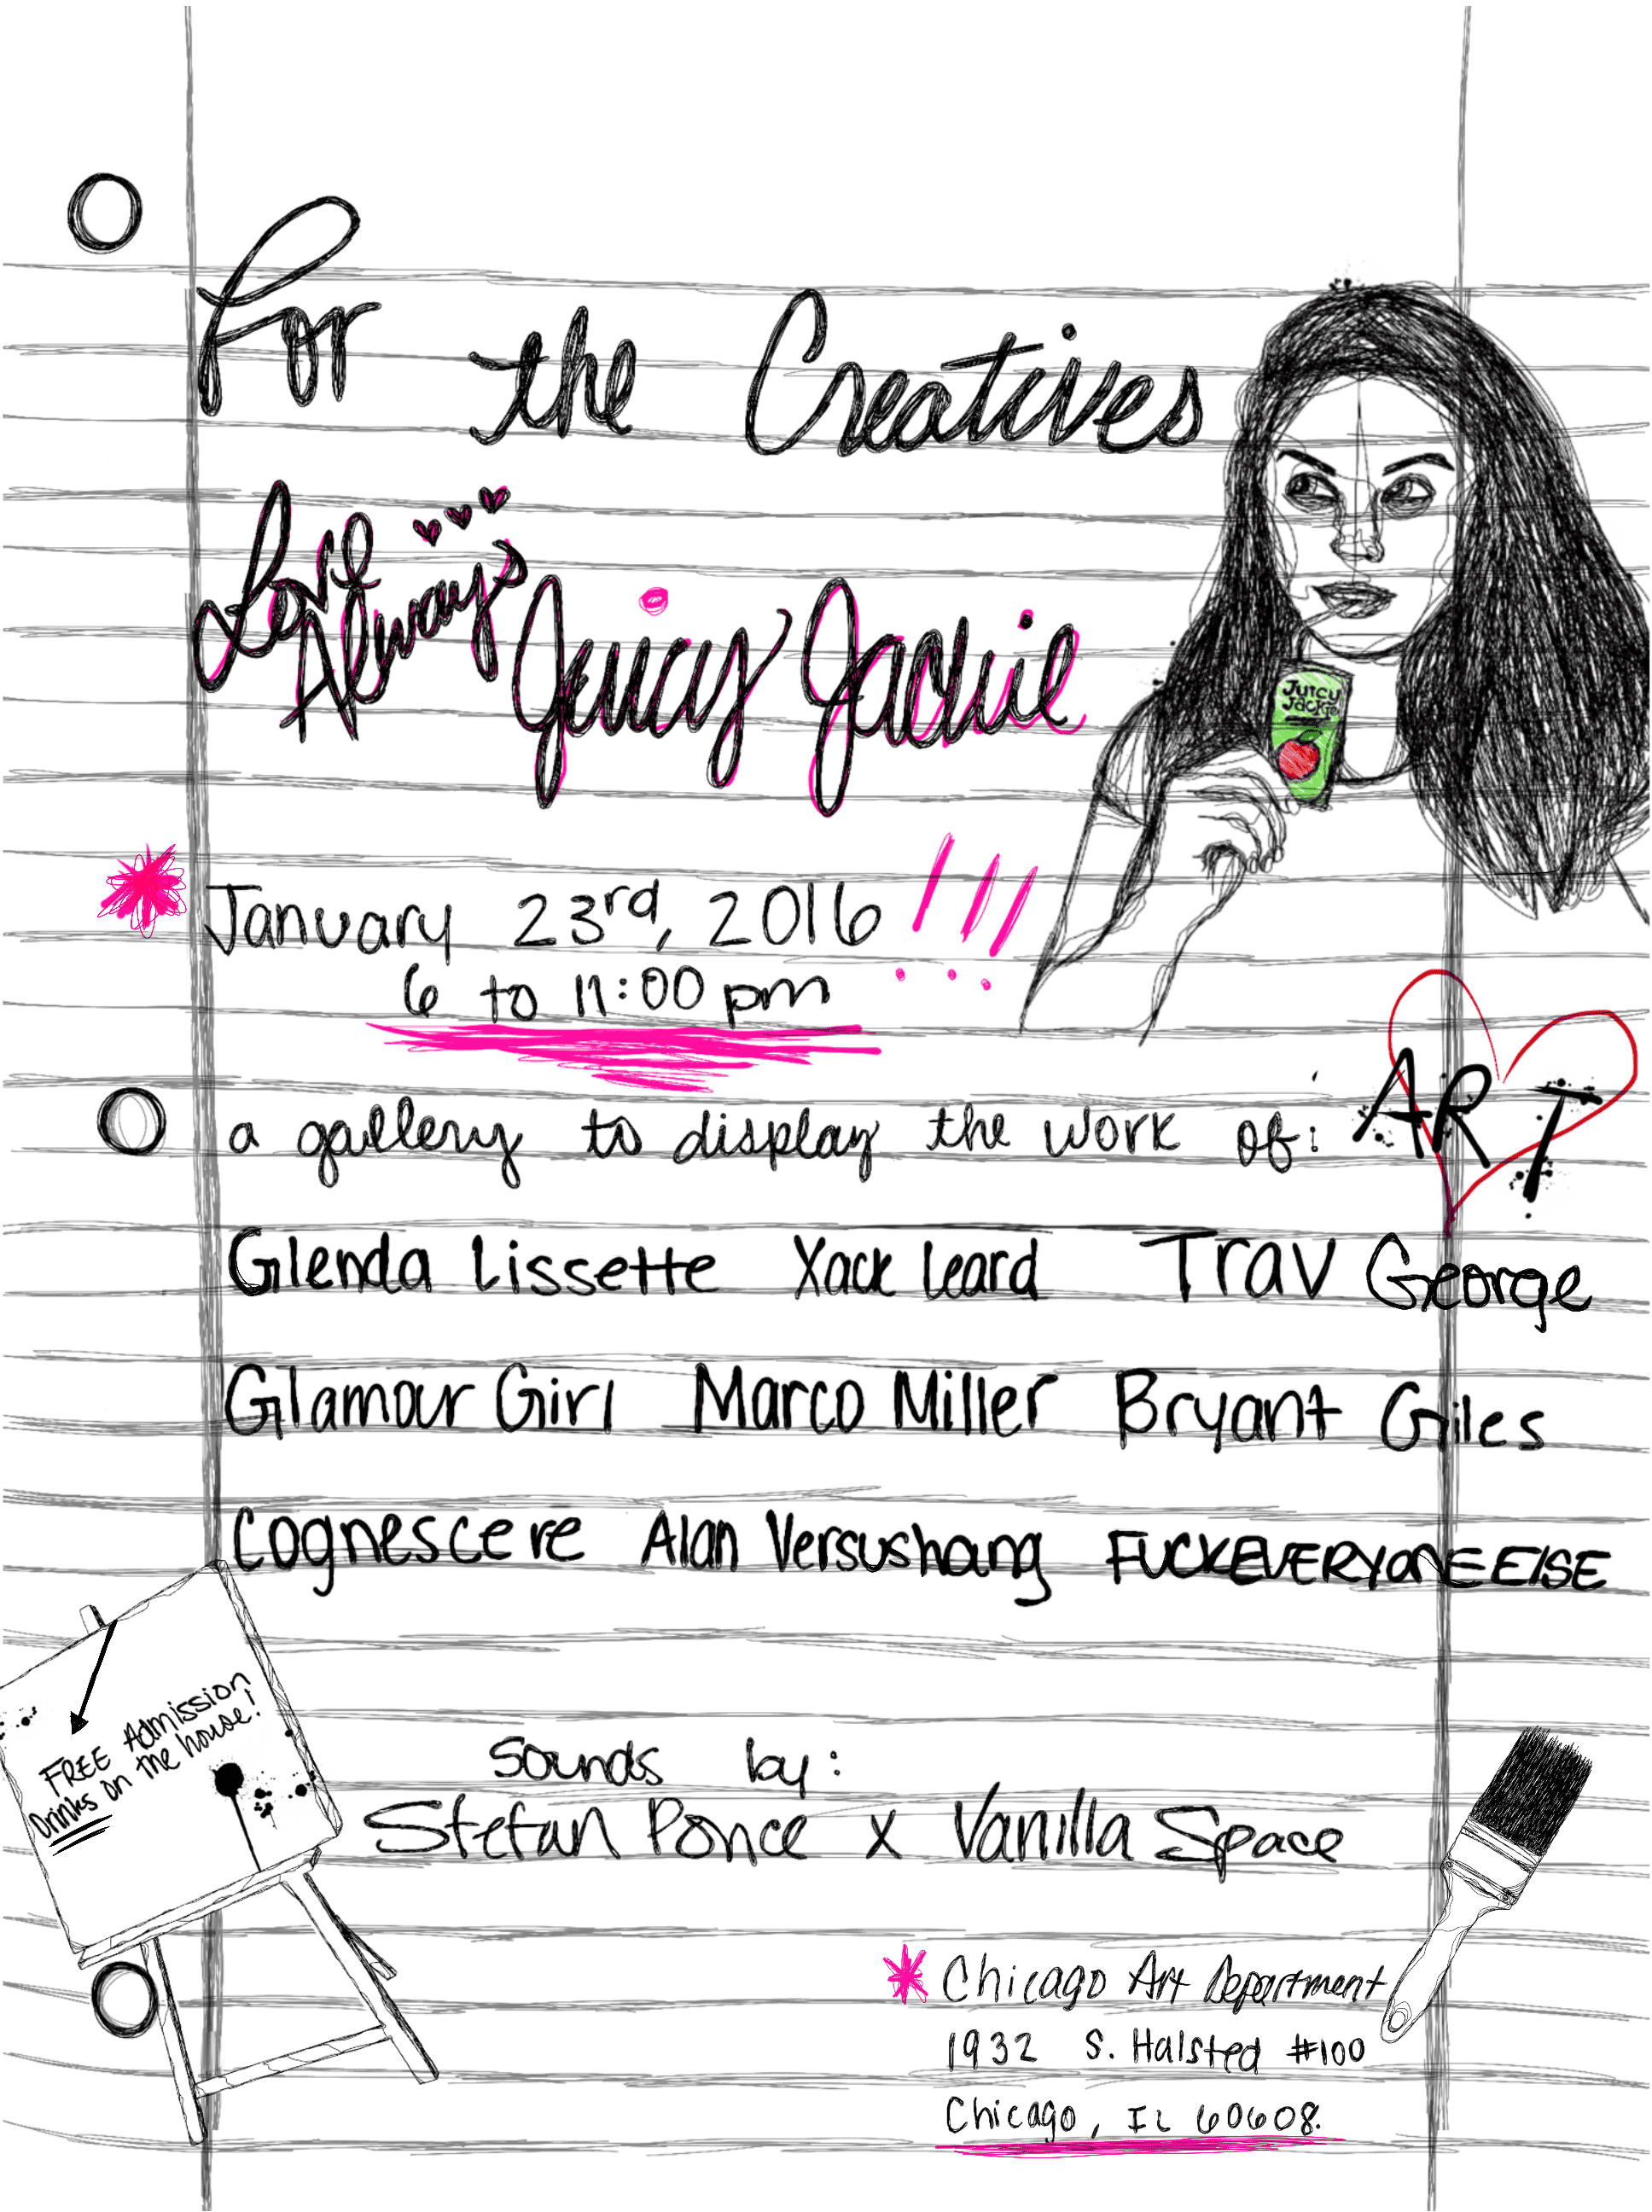 For the Creatives
Love Always
Juicy Jackie
Juicy
Jackie
January 23rd, 2016 !!!
6 to 11:00 pm
a gallery to display the work of:
ART
Glenda Lissette Xack Leard Trav George
Glamour Girl Marco Miller Bryant Giles
Cognescere Alan Versushang FUCKEVERYONEELSE
FREE Admission
Drinks on the house!
Sounds by:
Stefan Ponce x Vanilla Space
* Chicago Art Department
1932 S. Halsted #100
Chicago, IL 60608.